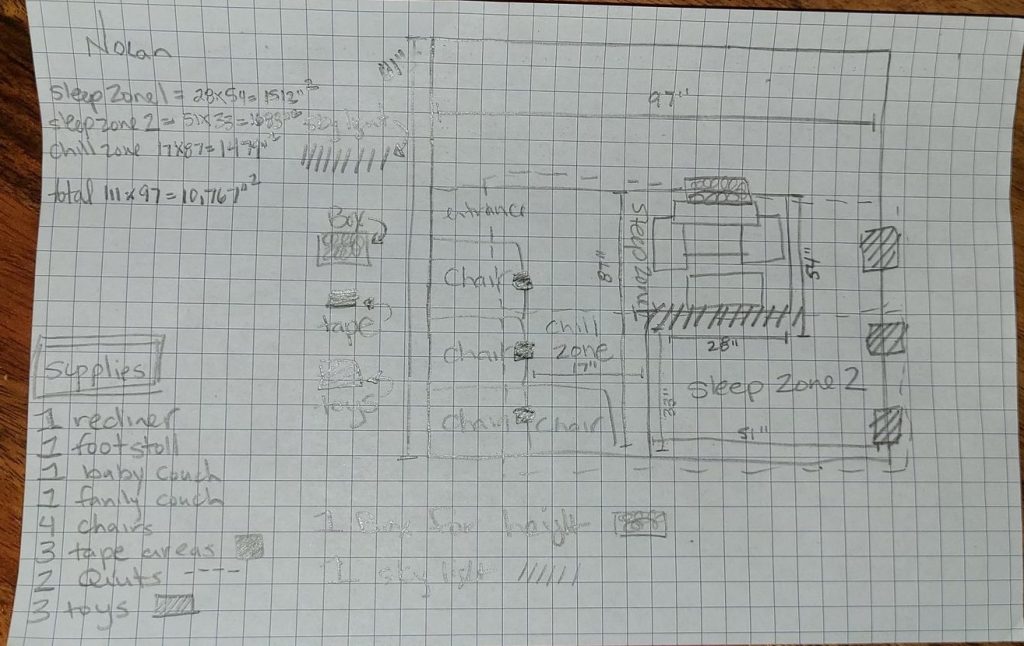 Nolan
Sleep Zone 1 = 28x54 = 1512"²
Sleep zone 2 = 51x33 = 1683"²
Chill zone 17x87 = 1479"²
total 111x97 = 10,767"²
Box
tape
toys
Supplies
1 recliner
1 footstoll
1 baby couch
1 family couch
4 chairs
3 tape areas
2 Quilts ----
3 toys
97"
entrance
Chair
Chair
Chair
Chair
chill
zone
17"
87"
Sleep Zone 1
54"
28"
Sleep Zone 2
33"
51"
1 Box for height
1 sky light